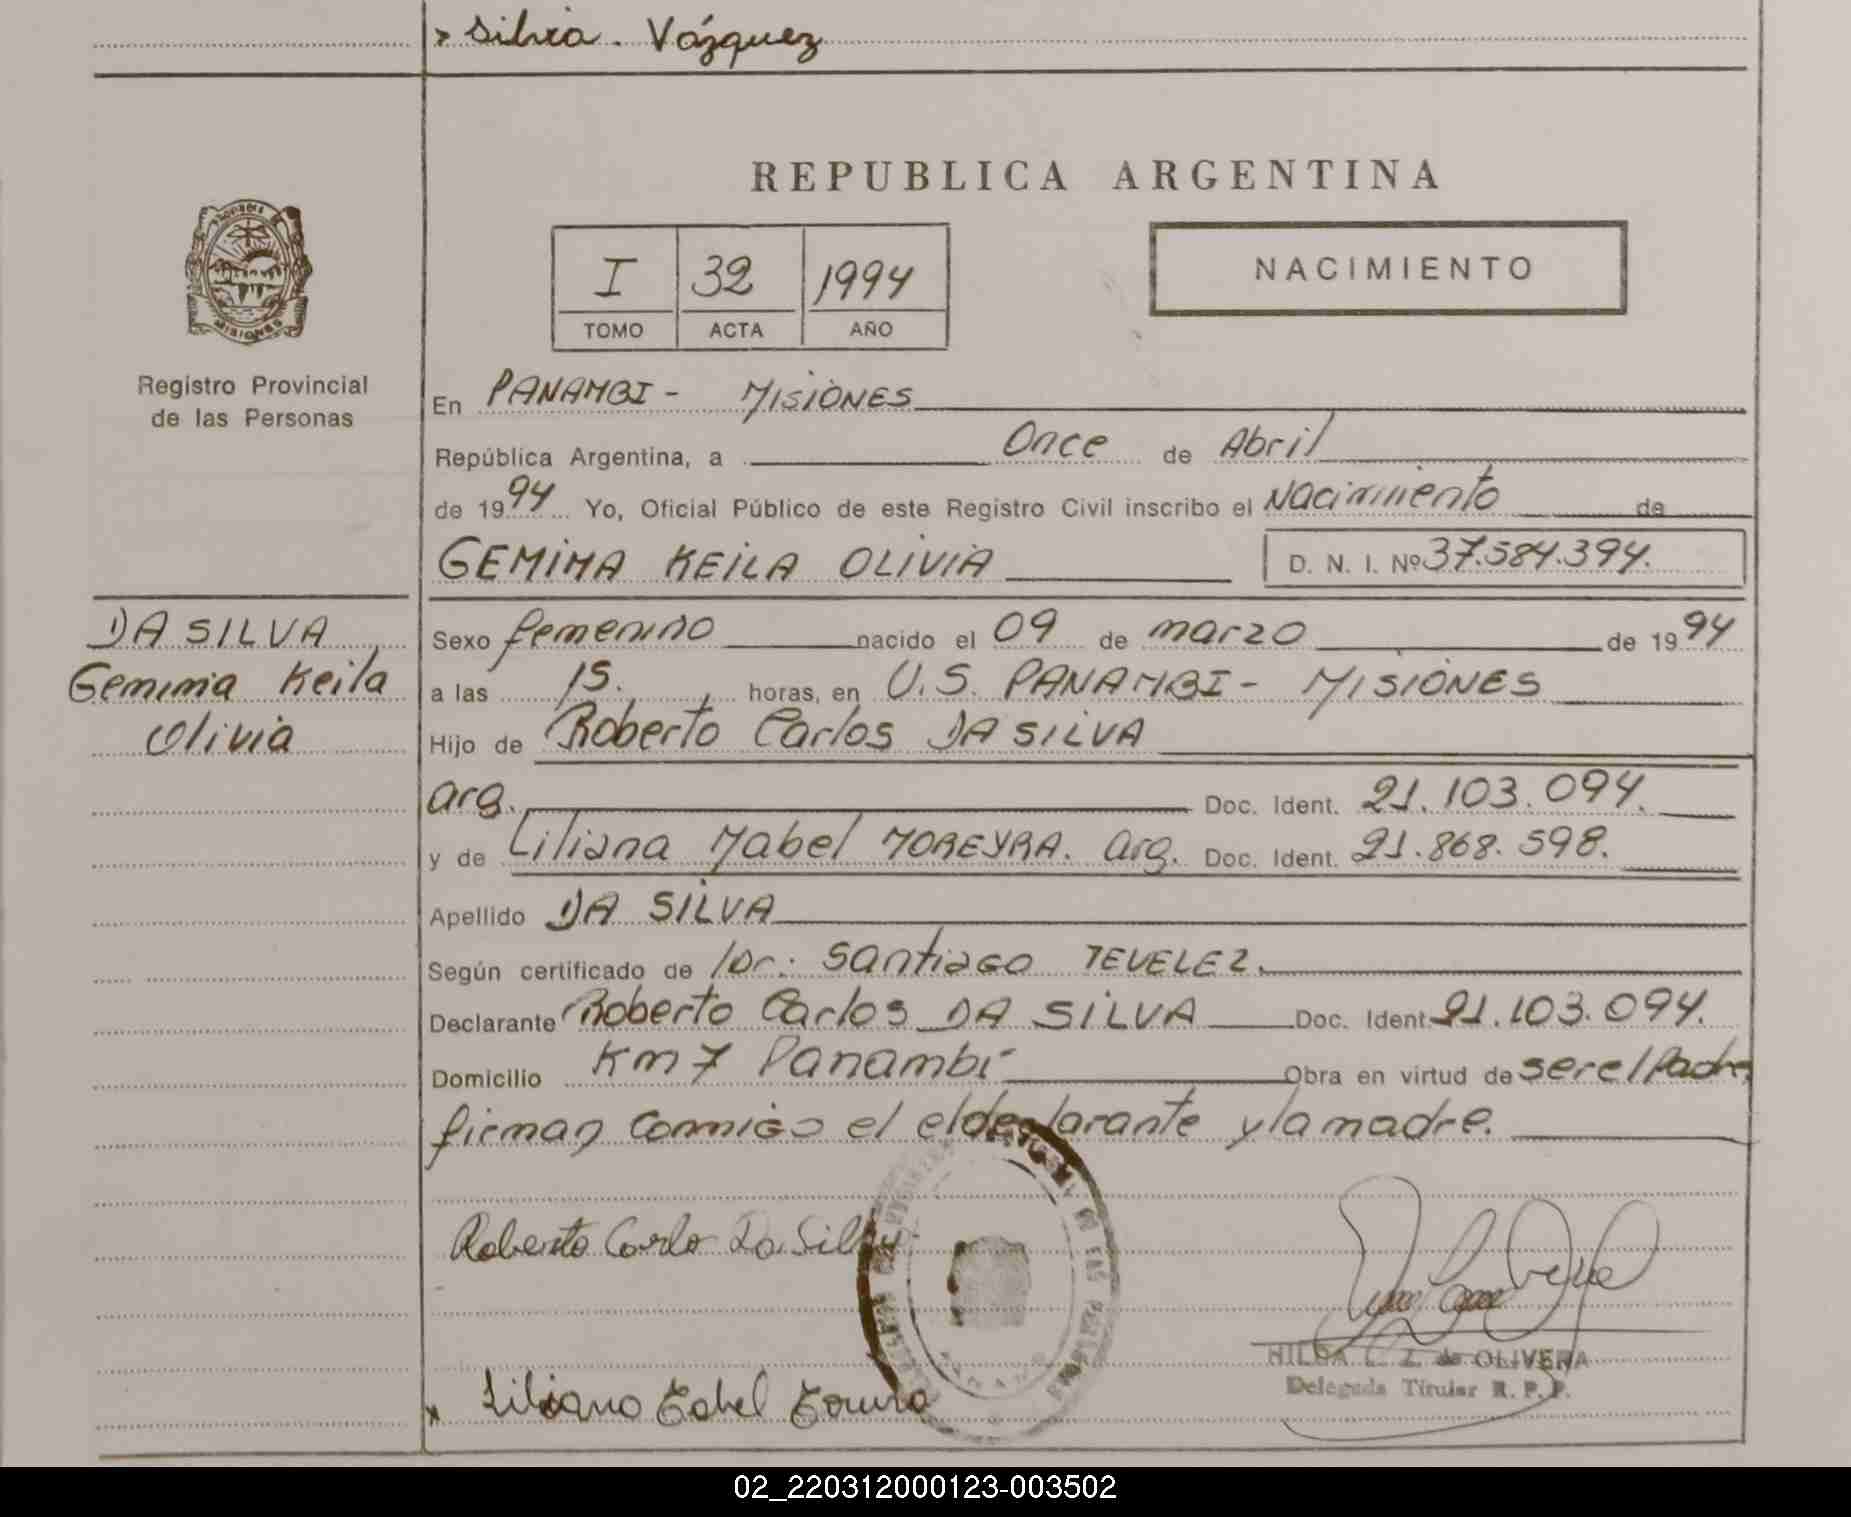 Silvia. Vázquez
REPUBLICA ARGENTINA
I 32 1994
TOMO ACTA AÑO
NACIMIENTO
MISIONES
Registro Provincial
de las Personas
En PANAMBI - MISIONES
República Argentina, a Once de Abril
de 1994 Yo, Oficial Público de este Registro Civil inscribo el Nacimiento de
GEMIMA KEILA OLIVIA D. N. I. Nº 37.584.394.
DA SILVA
Gemima Keila
Olivia
Sexo femenino nacido el 09 de marzo de 1994
a las 15. horas, en U.S. PANAMBI - MISIONES
Hijo de Roberto Carlos DA SILVA
arg. Doc. Ident. 21.103.094.
y de Liliana Mabel MOREYRA. arg. Doc. Ident. 21.868.598.
Apellido DA SILVA
Según certificado de Dr: Santiago TEVELEZ.
Declarante Roberto Carlos DA SILVA Doc. Ident. 21.103.094.
Domicilio Km 7 Panambí Obra en virtud de ser el Padre
firman conmigo el el declarante y la madre.
Roberto Carlo Da Silva
HILDA L. Z. de OLIVERA
Delegada Titular R. P. P.
02_220312000123-003502